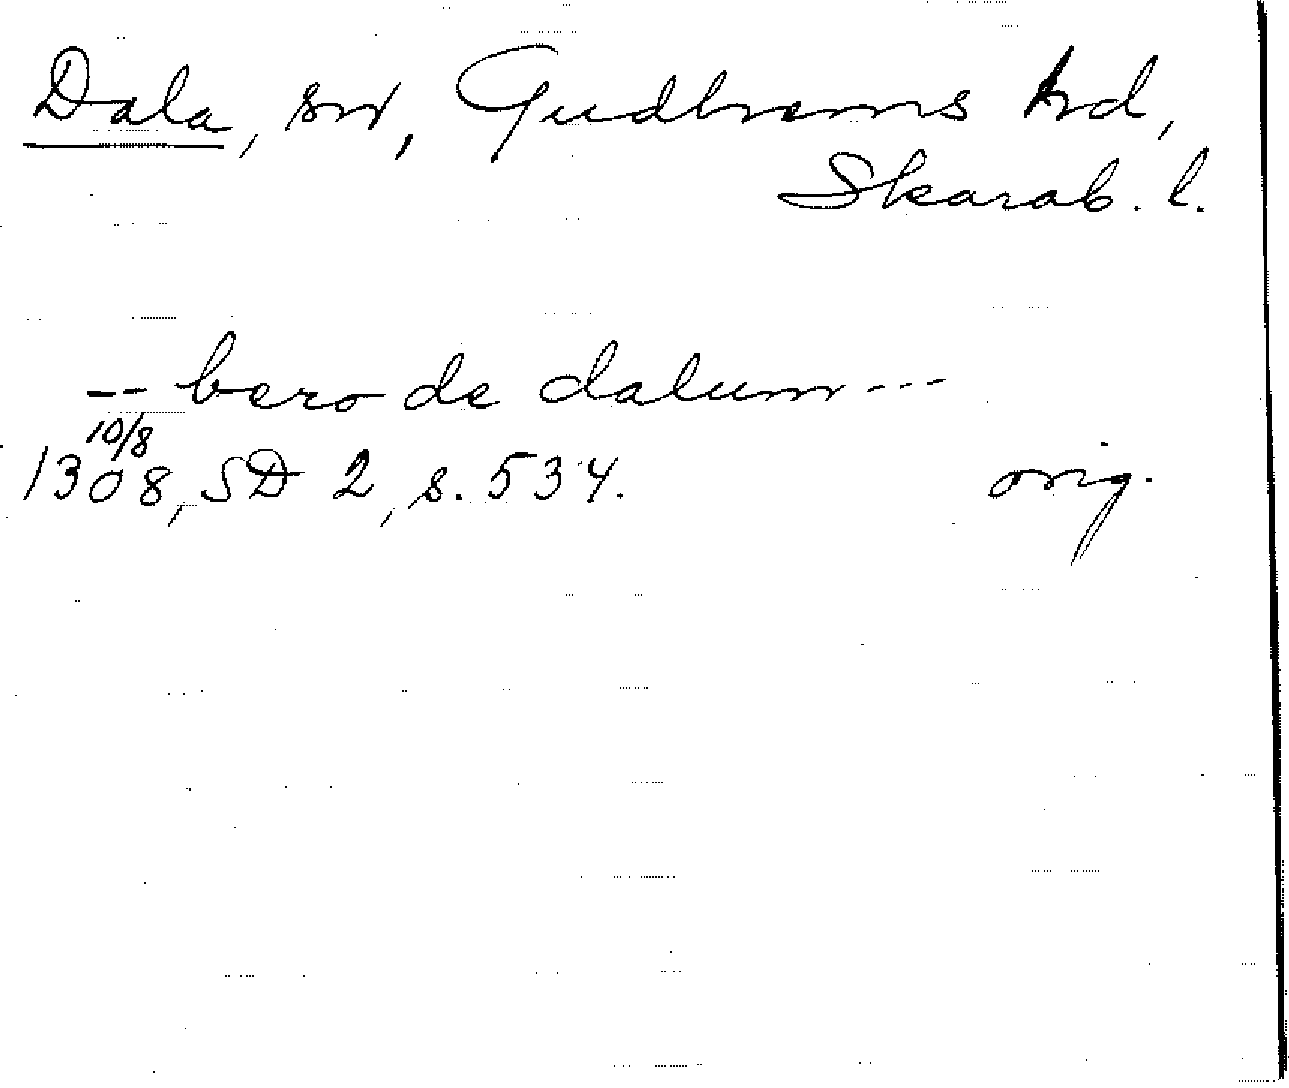 Dala, sn, Gudhems hd,
Skarab. l.
-- bero de dalum ---
10/8
1308, SD 2, s. 534.
orig.